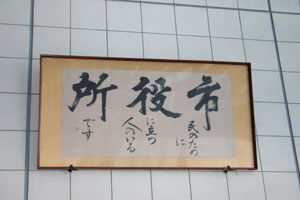 市
民のため
に
役
に立つ
人のいる
所
です